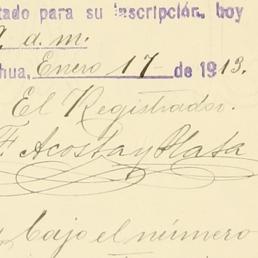 tado para su inscripción, hoy
9 a.m.
hua, Enero 17 de 1913.
El Registrador.
F. Acosta y Plata
bajo el número